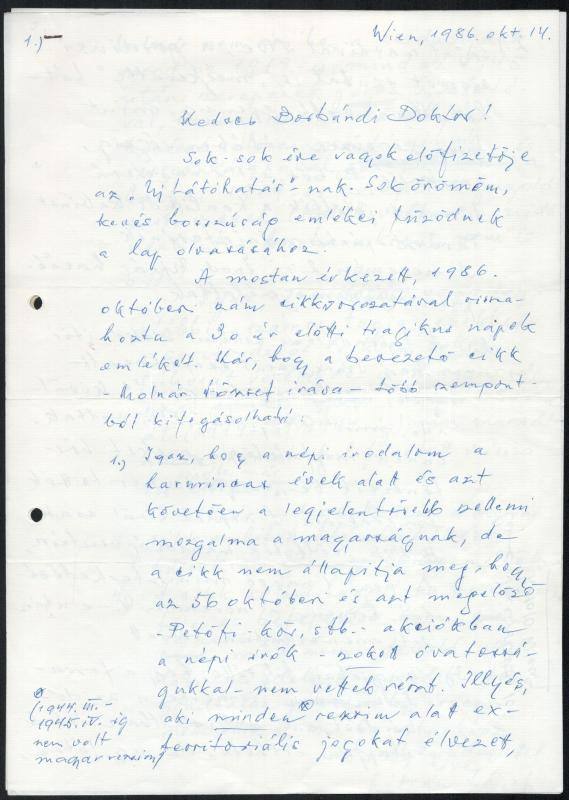 1.)
Wien, 1986. okt. 14.
Kedves Borbándi Doktor!
Sok-sok éve vagyok előfizetője
az „Új Látóhatár"-nak. Sok örömöm,
kevés bosszúság emlékei fűződnek
a lap olvasásához.
A mostan érkezett, 1986.
októberi szám cikksorozatával vissza-
hozta a 30. év előtti tragikus napok
emlékeit. Kár, hogy a bevezető cikk
- Molnár József írása - több szempont-
ból kifogásolható.
1.) Igaz, hogy a népi irodalom a
harmincas évek alatt és azt
követően a legjelentősebb szellemi
mozgalma a magyarságnak, de
a cikk nem állapítja meg, hogy
az 56 októberi és azt megelőző
-Petőfi-kör, stb.- akciókban
a népi írók - szokott óvatossá-
gukkal - nem vettek részt. Illyés,
aki minden rezsim alatt ex-
territoriális jogokat élvezett,
(1944. III.-
1945. IV. ig
nem volt
magyar rezsim)